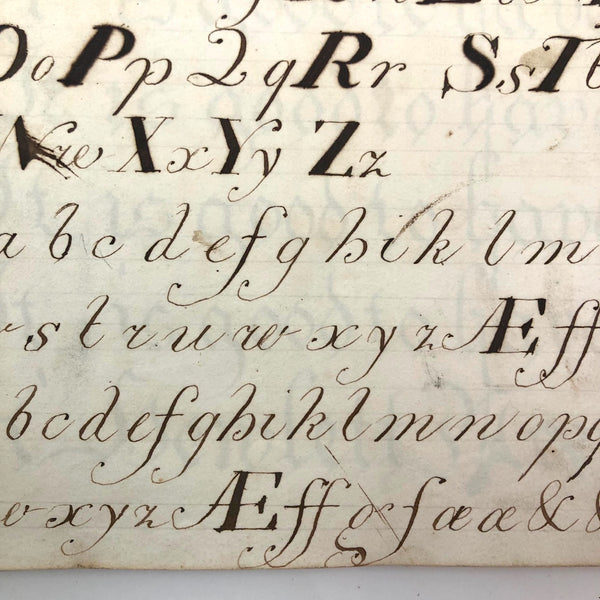 O o P p Q q R r S s T t
W w X x Y y Z z
a b c d e f g h i k l m
r s t v u w x y z Æ ff
b c d e f g h i k l m n o p q
w x y z Æ ff & ſ æ æ & &